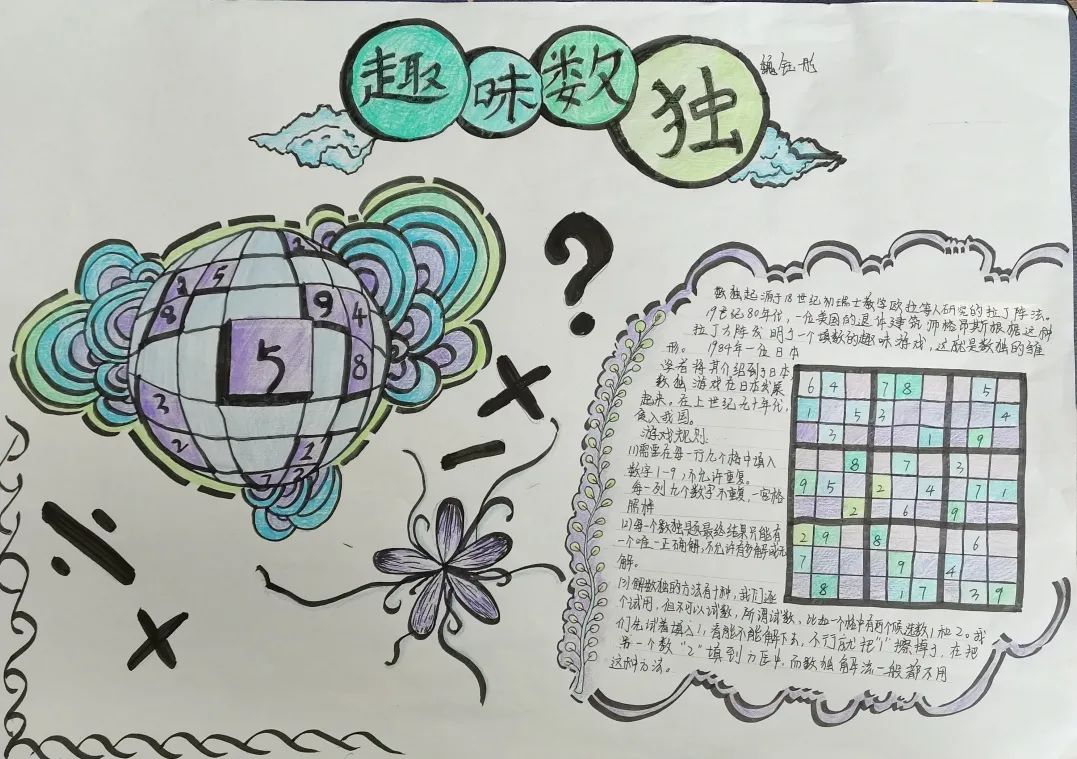 趣味数独
魏钰彤
数独起源于18世纪初瑞士数学欧拉等人研究的拉丁阵法。
19世纪80年代,一位美国的退休建筑师格昂斯根据这种
拉丁方阵发明了一个填数的趣味游戏,这就是数独的雏
形。 1984年一位日本
学者将其介绍到了日本,
数独游戏在日本发展
起来,在上世纪九十年代,
进入我国。
游戏规则:
(1)需要在每一行九个格中填入
数字1-9,不允许重复。
每一列九个数字不重复,一宫格
(2)每个数独题最终结果只能有
一个唯一正确解,不允许有多解或无
解。
(3)解数独的方法有十种,我们逐
个试用,但不可以试数,所谓试数,比如一个格中有两个候选数1和2。我
们先试着填入1,看能不能解下去,不行就把"1"擦掉了,在把
另一个数"2"填到方区中,而数独解法一般都不用
这种方法。
2
3 5
8 9 4
5 8
3
2 2
8
?
×
-
÷
×
6 4 7 8 5
1 5 3 4
3 1 9
8 7 3
9 5 2 4 7 1
2 6 9
2 9 8 6
7 9 4
8 1 7 3 9